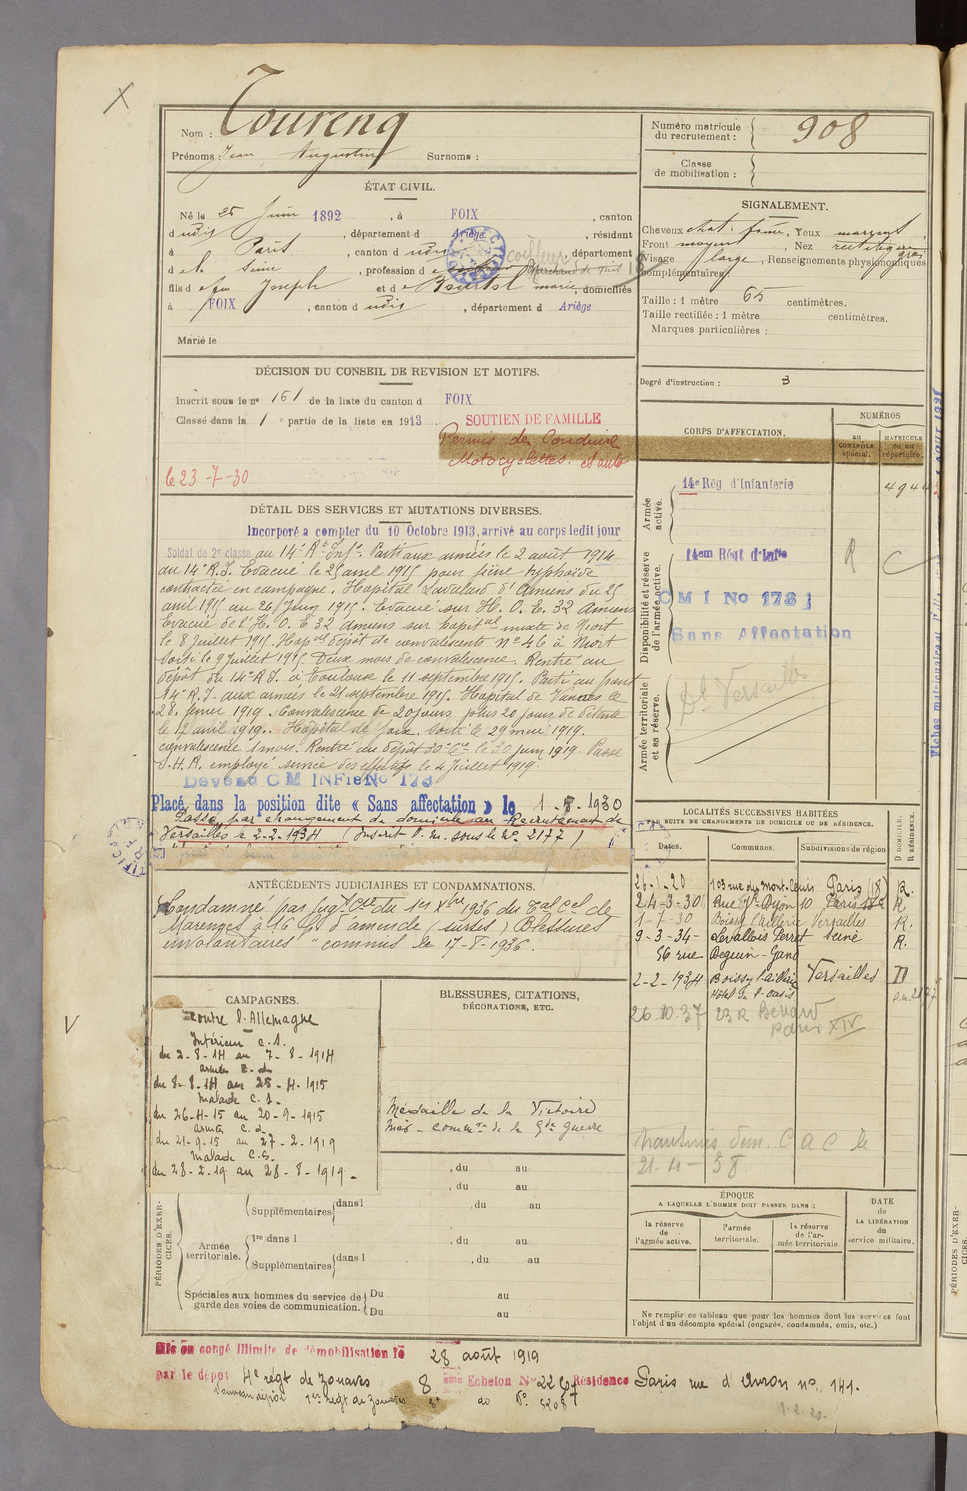 X
Nom : Toureng
Prénoms : Jean Augustin Surnoms :
Numéro matricule du recrutement : 908
Classe de mobilisation :
ÉTAT CIVIL.
Né le 25 Juin 1892, à FOIX, canton
dudit, département d Ariège, résidant
à Paris, canton dudit, département
d e la Seine, profession de coiffeur Marchand de vins
fils de feu Joseph et de Marie, domiciliés
à FOIX, canton dudit, département d Ariège
Marié le
SIGNALEMENT.
Cheveux chat. Yeux marrons
Front moyen, Nez rectiligne gros
Visage large, Renseignements physionomiques
complémentaires
Taille : 1 mètre 65 centimètres.
Taille rectifiée : 1 mètre centimètres.
Marques particulières :
Degré d'instruction : 3
DÉCISION DU CONSEIL DE REVISION ET MOTIFS.
Inscrit sous le nº 161 de la liste du canton d FOIX
Classé dans la 1e partie de la liste en 1913 SOUTIEN DE FAMILLE
Permis de Conduire
Motocyclettes. et auto
le 23-7-30
DÉTAIL DES SERVICES ET MUTATIONS DIVERSES.
Incorporé a compter du 10 Octobre 1913, arrivé au corps ledit jour
Soldat de 2e classe au 14e Rt Infie. Parti aux armées le 2 août 1914
au 14e R.I. Evacué le 25 avril 1915 pour fièvre typhoïde
contractée en campagne. Hopital d'Amiens du 25
avril 1915 au 26 Juin 1915. Evacué sur H. O. E. 32 Amiens
Evacué de l'H. O. E 32 Amiens sur hopital mixte de Niort
le 8 juillet 1915. Hopal dépôt de convalescents Nº 46 à Niort
Sorti le 9 juillet 1915. Deux mois de convalescence. Rentré au
dépôt du 14e R.I. à Toulouse le 11 septembre 1915. Parti au front
14e R.I. aux armées le 21 septembre 1915. Hopital de Vannes le
28 fevrier 1919. Convalescence de 20 jours plus 20 jours de détente
le avril 1919. Hôpital de Foix. Sorti le 29 mai 1919.
convalescence 1 mois. Rentré au dépôt le 30 juin 1919. Passé
S.H.R. employé service des effectifs le 4 Juillet 1919.
Devenu C M INFie No 173
Placé dans la position dite « Sans affectation » le 1-5-1930
Passé par changement de domicile au Recrutement de
Versailles le 2-2-1934 (Inscrit sous le Nº 2177)
CORPS D'AFFECTATION.
NUMÉROS
au CONTRÔLE spécial.
MATRICULE ou au répertoire.
Armée active.
14e Rég d'Infanterie 4944
Disponibilité et réserve de l'armée active.
14eme Régt d'Infie R
C M I No 173
Sans Affectation
Armée territoriale et sa réserve.
Dt Versailles
ANTÉCÉDENTS JUDICIAIRES ET CONDAMNATIONS.
Condamné par jugt du 1er Xbre 1936 du de
à 16 f d'amende (sursis) Blessures
involontaires " commis le 17-8-1936.
LOCALITÉS SUCCESSIVES HABITÉES
PAR SUITE DE CHANGEMENTS DE DOMICILE OU DE RÉSIDENCE.
Dates. Communes. Subdivisions de région D DOMICILE. R RÉSIDENCE.
26-1-20 103 rue du Mont-Cenis Paris (18) R.
24-3-30 Rue Paris R
1-7-30 Boissy l'Aillerie Versailles R.
9-3-34- Levallois Perret Seine R.
56 rue
2-2-1934 Boissy l'Aillerie Versailles D
Hôtel
26.10.37 23 R Bénard
Paris XIV
C A C le
21-4-38
CAMPAGNES.
Contre l'Allemagne
Intérieur C.S.
du 2-8-14 au 7-8-1914
armées C.d.
du 8-8-14 au 25-4-1915
Malade C.S.
du 26-4-15 au 20-9-1915
armées C.d.
du 21-9-15 au 27-2-1919
Malade C.S.
du 28-2-19 au 28-8-1919-
V
BLESSURES, CITATIONS,
DÉCORATIONS, ETC.
Médaille de la Victoire
Méd- Commve de la Gde Guerre
PÉRIODES D'EXERCICES.
, du au
, du au
Supplémentaires dans l , du au
Armée territoriale.
1re dans l , du au
Supplémentaires dans l , du au
Spéciales aux hommes du service de garde des voies de communication.
Du au
Du au
ÉPOQUE
A LAQUELLE L'HOMME DOIT PASSER DANS :
la réserve de l'armée active.
l'armée territoriale.
la réserve de l'armée territoriale.
DATE de LA LIBÉRATION du service militaire.
Ne remplir ce tableau que pour les hommes dont les services font
l'objet d'un décompte spécial (engagés, condamnés, omis, etc.)
Mis en congé illimité de démobilisation le 28 août 1919
par le dépôt 4e régt de Zouaves 8eme Echelon No Résidence Paris rue d'Avron nº 141.
Nouveau dépôt 1er Régt de Zouaves